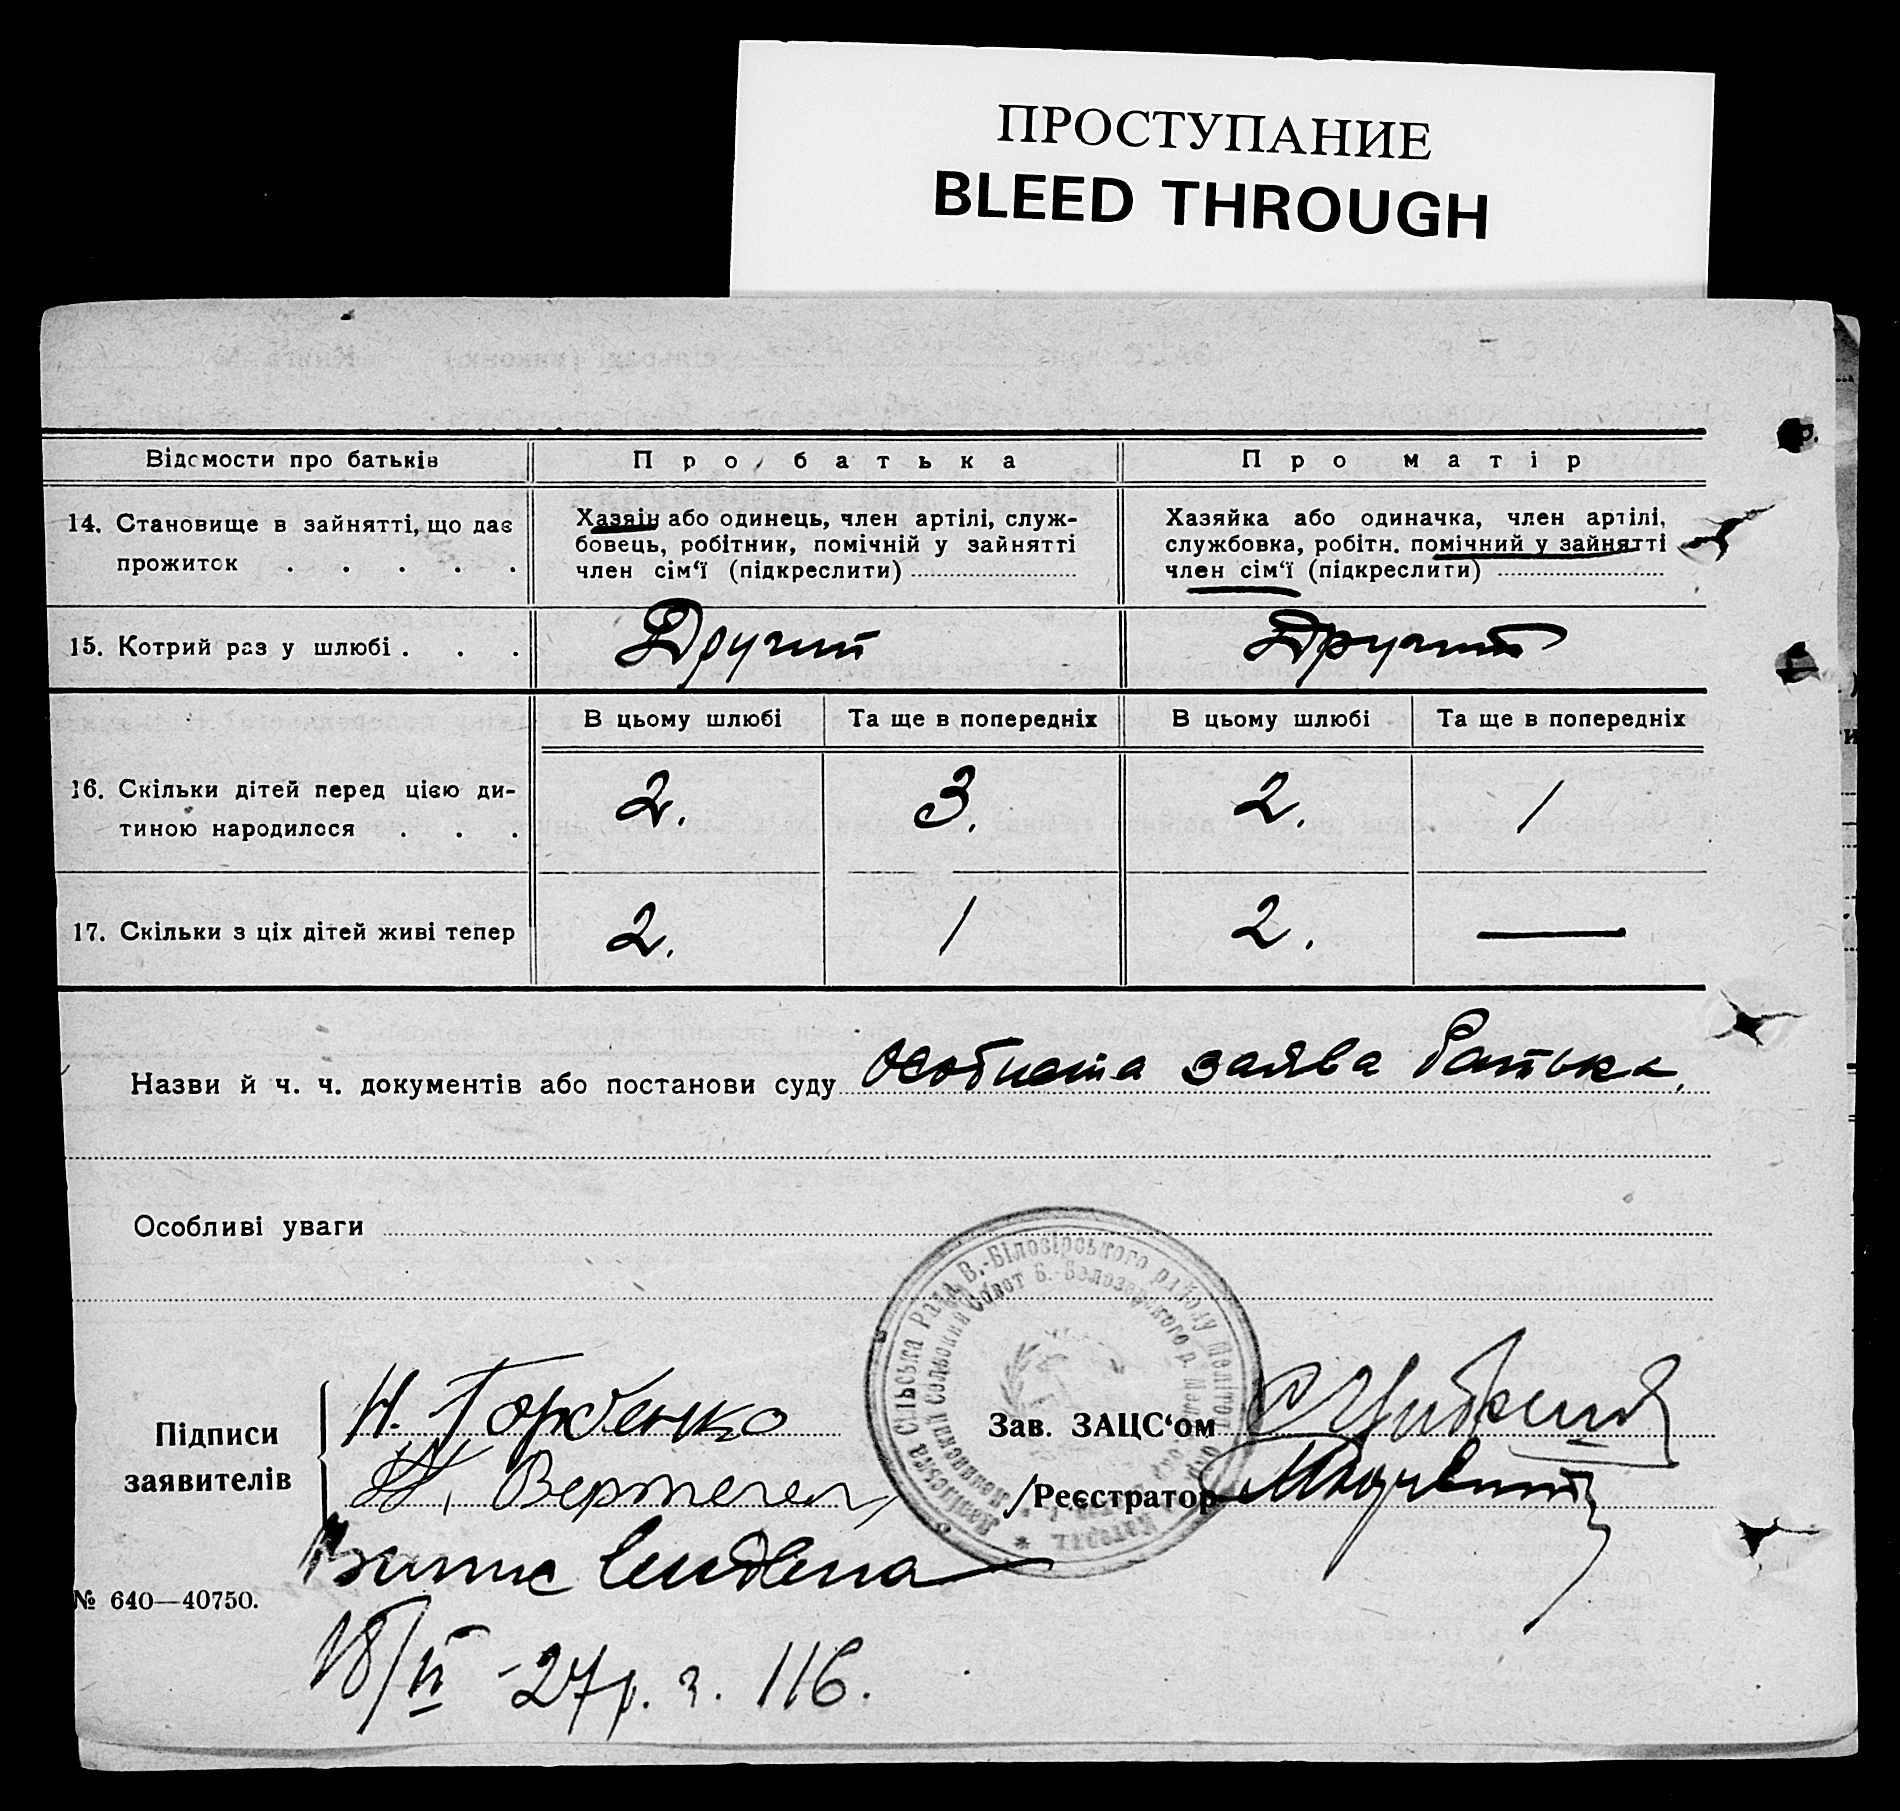 ПРОСТУПАНИЕ
BLEED THROUGH
Відомости про батьків
Про батька
Про матір
14. Становище в зайнятті, що дає
прожиток . . . . .
Хазяін або одинець, член артілі, служ-
бовець, робітник, помічній у зайнятті
член сім‘ї (підкреслити)
Хазяйка або одиначка, член артілі,
службовка, робітн. помічний у зайнятті
член сім‘ї (підкреслити)
15. Котрий раз у шлюбі . . .
Другий
Другий
В цьому шлюбі
Та ще в попередніх
В цьому шлюбі
Та ще в попередніх
16. Скільки дітей перед цією ди-
тиною народилося . . .
2.
3.
2.
1
17. Скільки з ціх дітей живі тепер
2.
1
2.
—
Назви й ч. ч. документів або постанови суду особиста заява батька.
Особливі уваги
В.-Білозірського району Мелітоп.
Сільська Рада
Підписи
заявителів
Н. Горбенко
Зав. ЗАЦС‘ом
Реєстратор
Випис видана
№ 640—40750.
-27 р. з. 116.